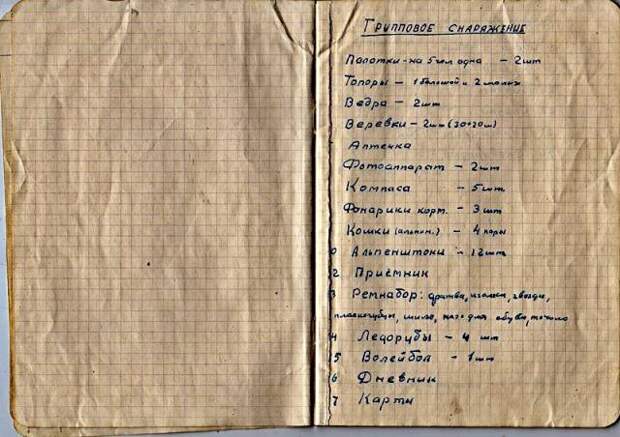 Групповое снаряжение
Палатки - на 5 чел одна - 2 шт
Топоры - 1 большой и 2 малых
Ведра - 2 шт
Веревки - 2 шт (30+20м)
Аптечка
Фотоаппарат - 2 шт
Компаса - 5 шт
Фонарики карм. - 3 шт
Кошки (альпин.) - 4 пары
0 Альпенштоки - 12 шт
2 Приёмник
3 Ремнабор: дратва, иголки, гвозди,
плоскогубцы, шило, для обуви, точило
4 Ледорубы - 4 шт
5 Волейбол - 1 шт
6 Дневник
7 Карты